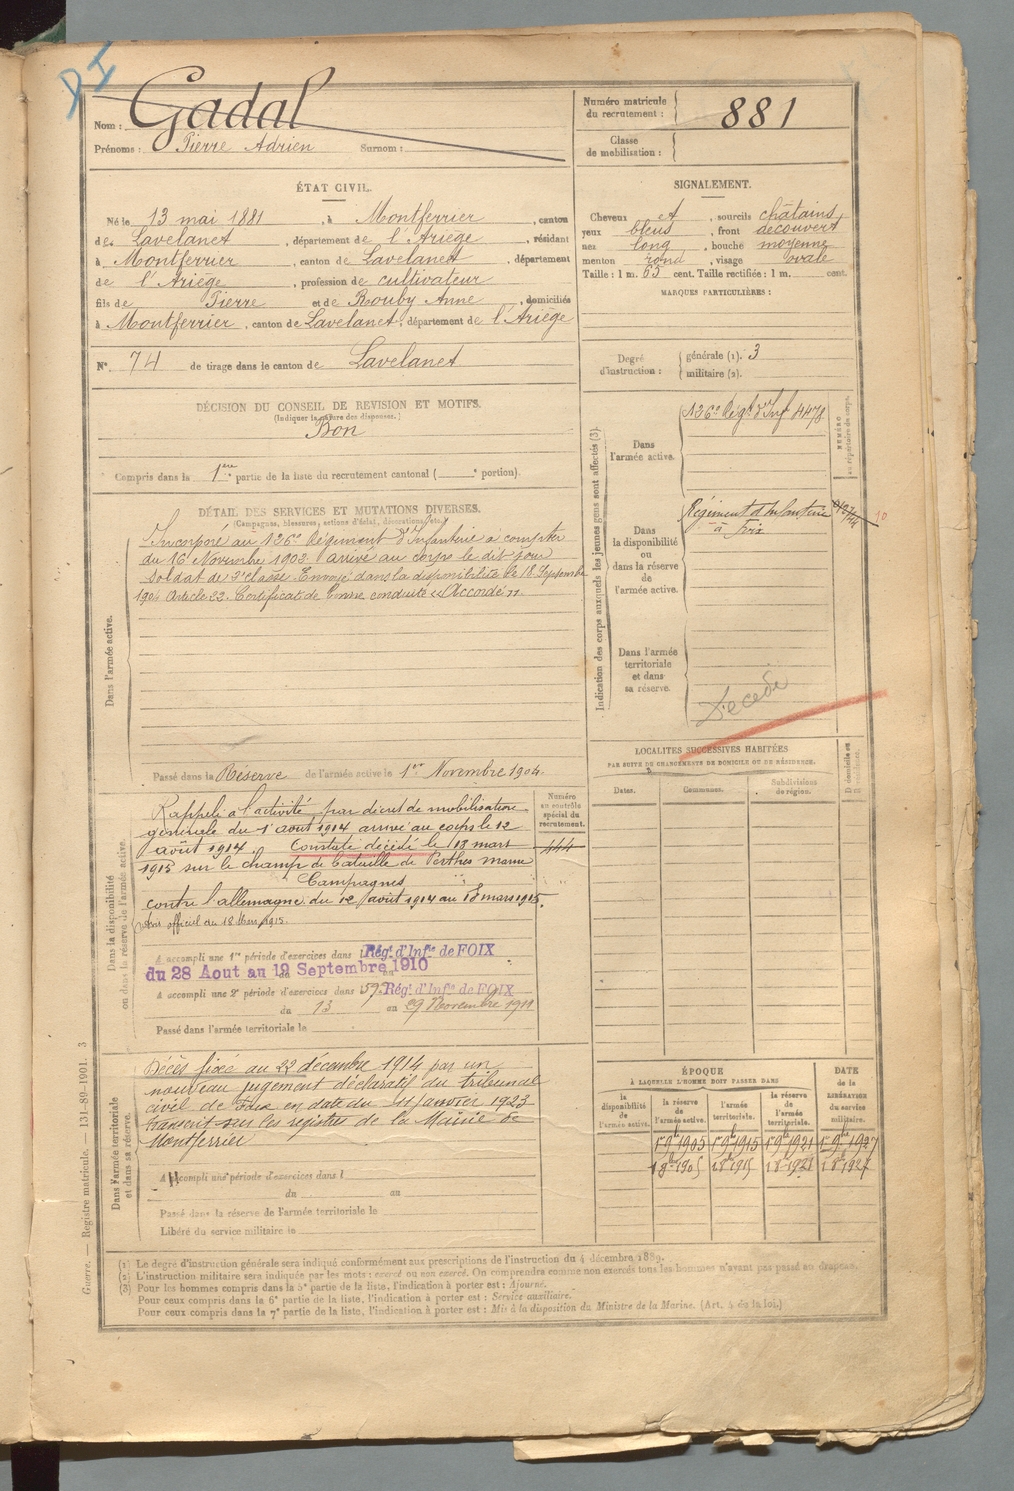 DI
Gadal
Nom :
Prénoms : Pierre Adrien Surnom :
Numéro matricule du recrutement : 881
Classe de mobilisation :
ÉTAT CIVIL.
Né le 13 mai 1881, à Montferrier, canton
de Lavelanet, département de l'Ariège, résidant
à Montferrier, canton de Lavelanet, département
de l'Ariège, profession de cultivateur
fils de Pierre et de Rouby Anne, domiciliés
à Montferrier, canton de Lavelanet, département de l'Ariège
N° 74 de tirage dans le canton de Lavelanet
SIGNALEMENT.
Cheveux et, sourcils châtains
yeux bleus, front découvert
nez long, bouche moyenne
menton rond, visage ovale
Taille : 1 m. 63 cent. Taille rectifiée : 1 m. cent.
MARQUES PARTICULIÈRES :
Degré d'instruction : générale (1). 3
militaire (2).
DÉCISION DU CONSEIL DE REVISION ET MOTIFS.
(Indiquer la nature des dispenses.)
Bon
Compris dans la 1ère partie de la liste du recrutement cantonal ( ° portion).
DÉTAIL DES SERVICES ET MUTATIONS DIVERSES.
(Campagnes, blessures, actions d'éclat, décorations, etc.)
Dans l'armée active.
Incorporé au 126e Régiment d'Infanterie à compter
du 16 Novembre 1902 arrivé au corps le dit jour
Soldat de 2e classe. Envoyé dans la disponibilité le 18 Septembre
1904 Article 22. Certificat de bonne conduite « Accordé ».
Passé dans la Réserve de l'armée active le 1er Novembre 1904.
Indication des corps auxquels les jeunes gens sont affectés (3).
NUMÉRO au répertoire du corps.
Dans l'armée active.
126e Régt d'Inf 4478
Dans la disponibilité ou dans la réserve de l'armée active.
Régiment d'Infanterie
à Foix
10
Dans l'armée territoriale et dans sa réserve.
Décédé
LOCALITÉS SUCCESSIVES HABITÉES
PAR SUITE DE CHANGEMENTS DE DOMICILE OU DE RÉSIDENCE.
Dates. Communes. Subdivisions de région. D domicile ou R résidence.
Numéro au contrôle spécial du recrutement.
444
Dans la disponibilité ou dans la réserve de l'armée active.
Rappelé à l'activité par décret de mobilisation
générale du 1er août 1914 arrivé au corps le 12
août 1914. Constaté décédé le 13 mars
1915 sur le champ de bataille de Perthes marne
Campagnes
contre l'allemagne du 12 août 1914 au 13 mars 1915.
Avis officiel du 18 Mars 1915.
A accompli une 1re période d'exercices dans l Régt d'Infie de FOIX
du 28 Aout au 19 Septembre 1910
A accompli une 2e période d'exercices dans 59e Régt d'Infie de FOIX
du 13 au 29 Novembre 1911
Passé dans l'armée territoriale le
Dans l'armée territoriale et dans sa réserve.
Décès fixé au 22 décembre 1914 par un
nouveau jugement déclaratif du tribunal
civil de Foix en date du 11 janvier 1923
transcrit sur les registres de la Mairie de
Montferrier
A accompli une période d'exercices dans l
du au
Passé dans la réserve de l'armée territoriale le
Libéré du service militaire le
ÉPOQUE
À LAQUELLE L'HOMME DOIT PASSER DANS
DATE de la LIBÉRATION du service militaire.
la disponibilité de l'armée active. la réserve de l'armée active. l'armée territoriale. la réserve de l'armée territoriale.
1er 9bre 1905 1er 9bre 1915 1er 9bre 1921 1er 9bre 1927
1 8bre 1905 1 8bre 1915 1 8bre 1921 1 8bre 1927
(1) Le degré d'instruction générale sera indiqué conformément aux prescriptions de l'instruction du 4 décembre 1889.
(2) L'instruction militaire sera indiquée par les mots : exercé ou non exercé. On comprendra comme non exercés tous les hommes n'ayant pas passé au drapeau.
(3) Pour les hommes compris dans la 5e partie de la liste, l'indication à porter est : Ajourné.
Pour ceux compris dans la 6e partie de la liste, l'indication à porter est : Service auxiliaire.
Pour ceux compris dans la 7e partie de la liste, l'indication à porter est : Mis à la disposition du Ministre de la Marine. (Art. 4 de la loi.)
Guerre. — Registre matricule. — 131-89-1901. 3